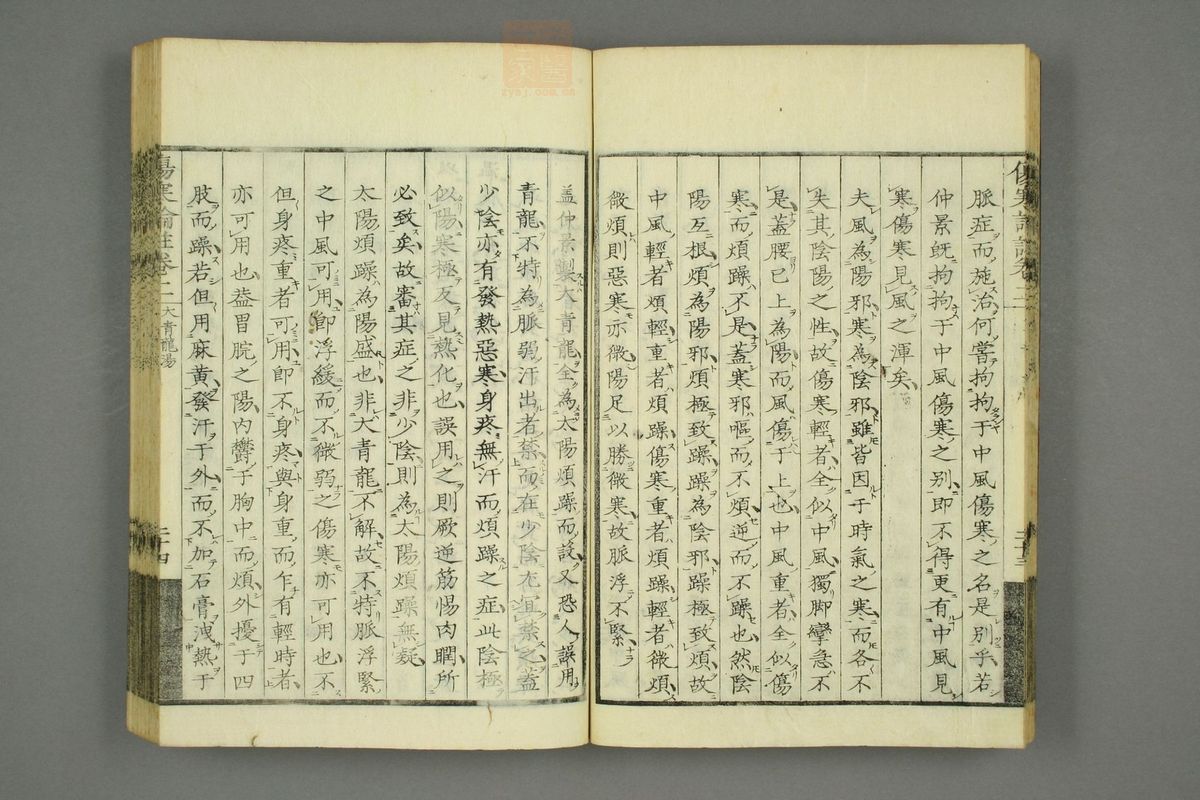 脈症而施治何嘗拘拘于中風傷寒之名是別乎若
仲景既拘拘于中風傷寒之別即不得更有中風見
寒傷寒見風之渾矣
夫風為陽邪寒為陰邪雖皆因于時氣之寒而各不
失其陰陽之性故傷寒輕者全似中風獨脚攣急不
是蓋腰已上為陽而風傷于上也中風重者全似傷
寒而煩躁不是蓋寒邪嘔而不煩逆而不躁也然陰
陽互根煩為陽邪煩極致躁躁為陰邪躁極致煩故
中風輕者煩輕重者煩躁傷寒重者煩躁輕者微煩
微煩則惡寒亦微陽足以勝微寒故脈浮不緊
蓋仲景製大青龍全為太陽煩躁而設又恐人誤用
青龍不特為脈弱汗出者禁而在少陰尤宜禁之蓋
少陰亦有發熱惡寒身疼無汗而煩躁之症此陰極
似陽寒極反見熱化也誤用之則厥逆筋惕肉瞤所
必致矣故審其症之非少陰則為太陽煩躁無疑
太陽煩躁為陽盛也非大青龍不解故不特脈浮緊
之中風可用即浮緩而不微弱之傷寒亦可用也不
但身疼重者可用即不身疼與身重而乍有輕時者
亦可用也蓋胃脘之陽內鬱于胸中而煩外擾于四
肢而躁若但用麻黃發汗于外而不加石膏洩熱于
傷寒論註卷二 大青龍湯 二十四
zysj.com.cn